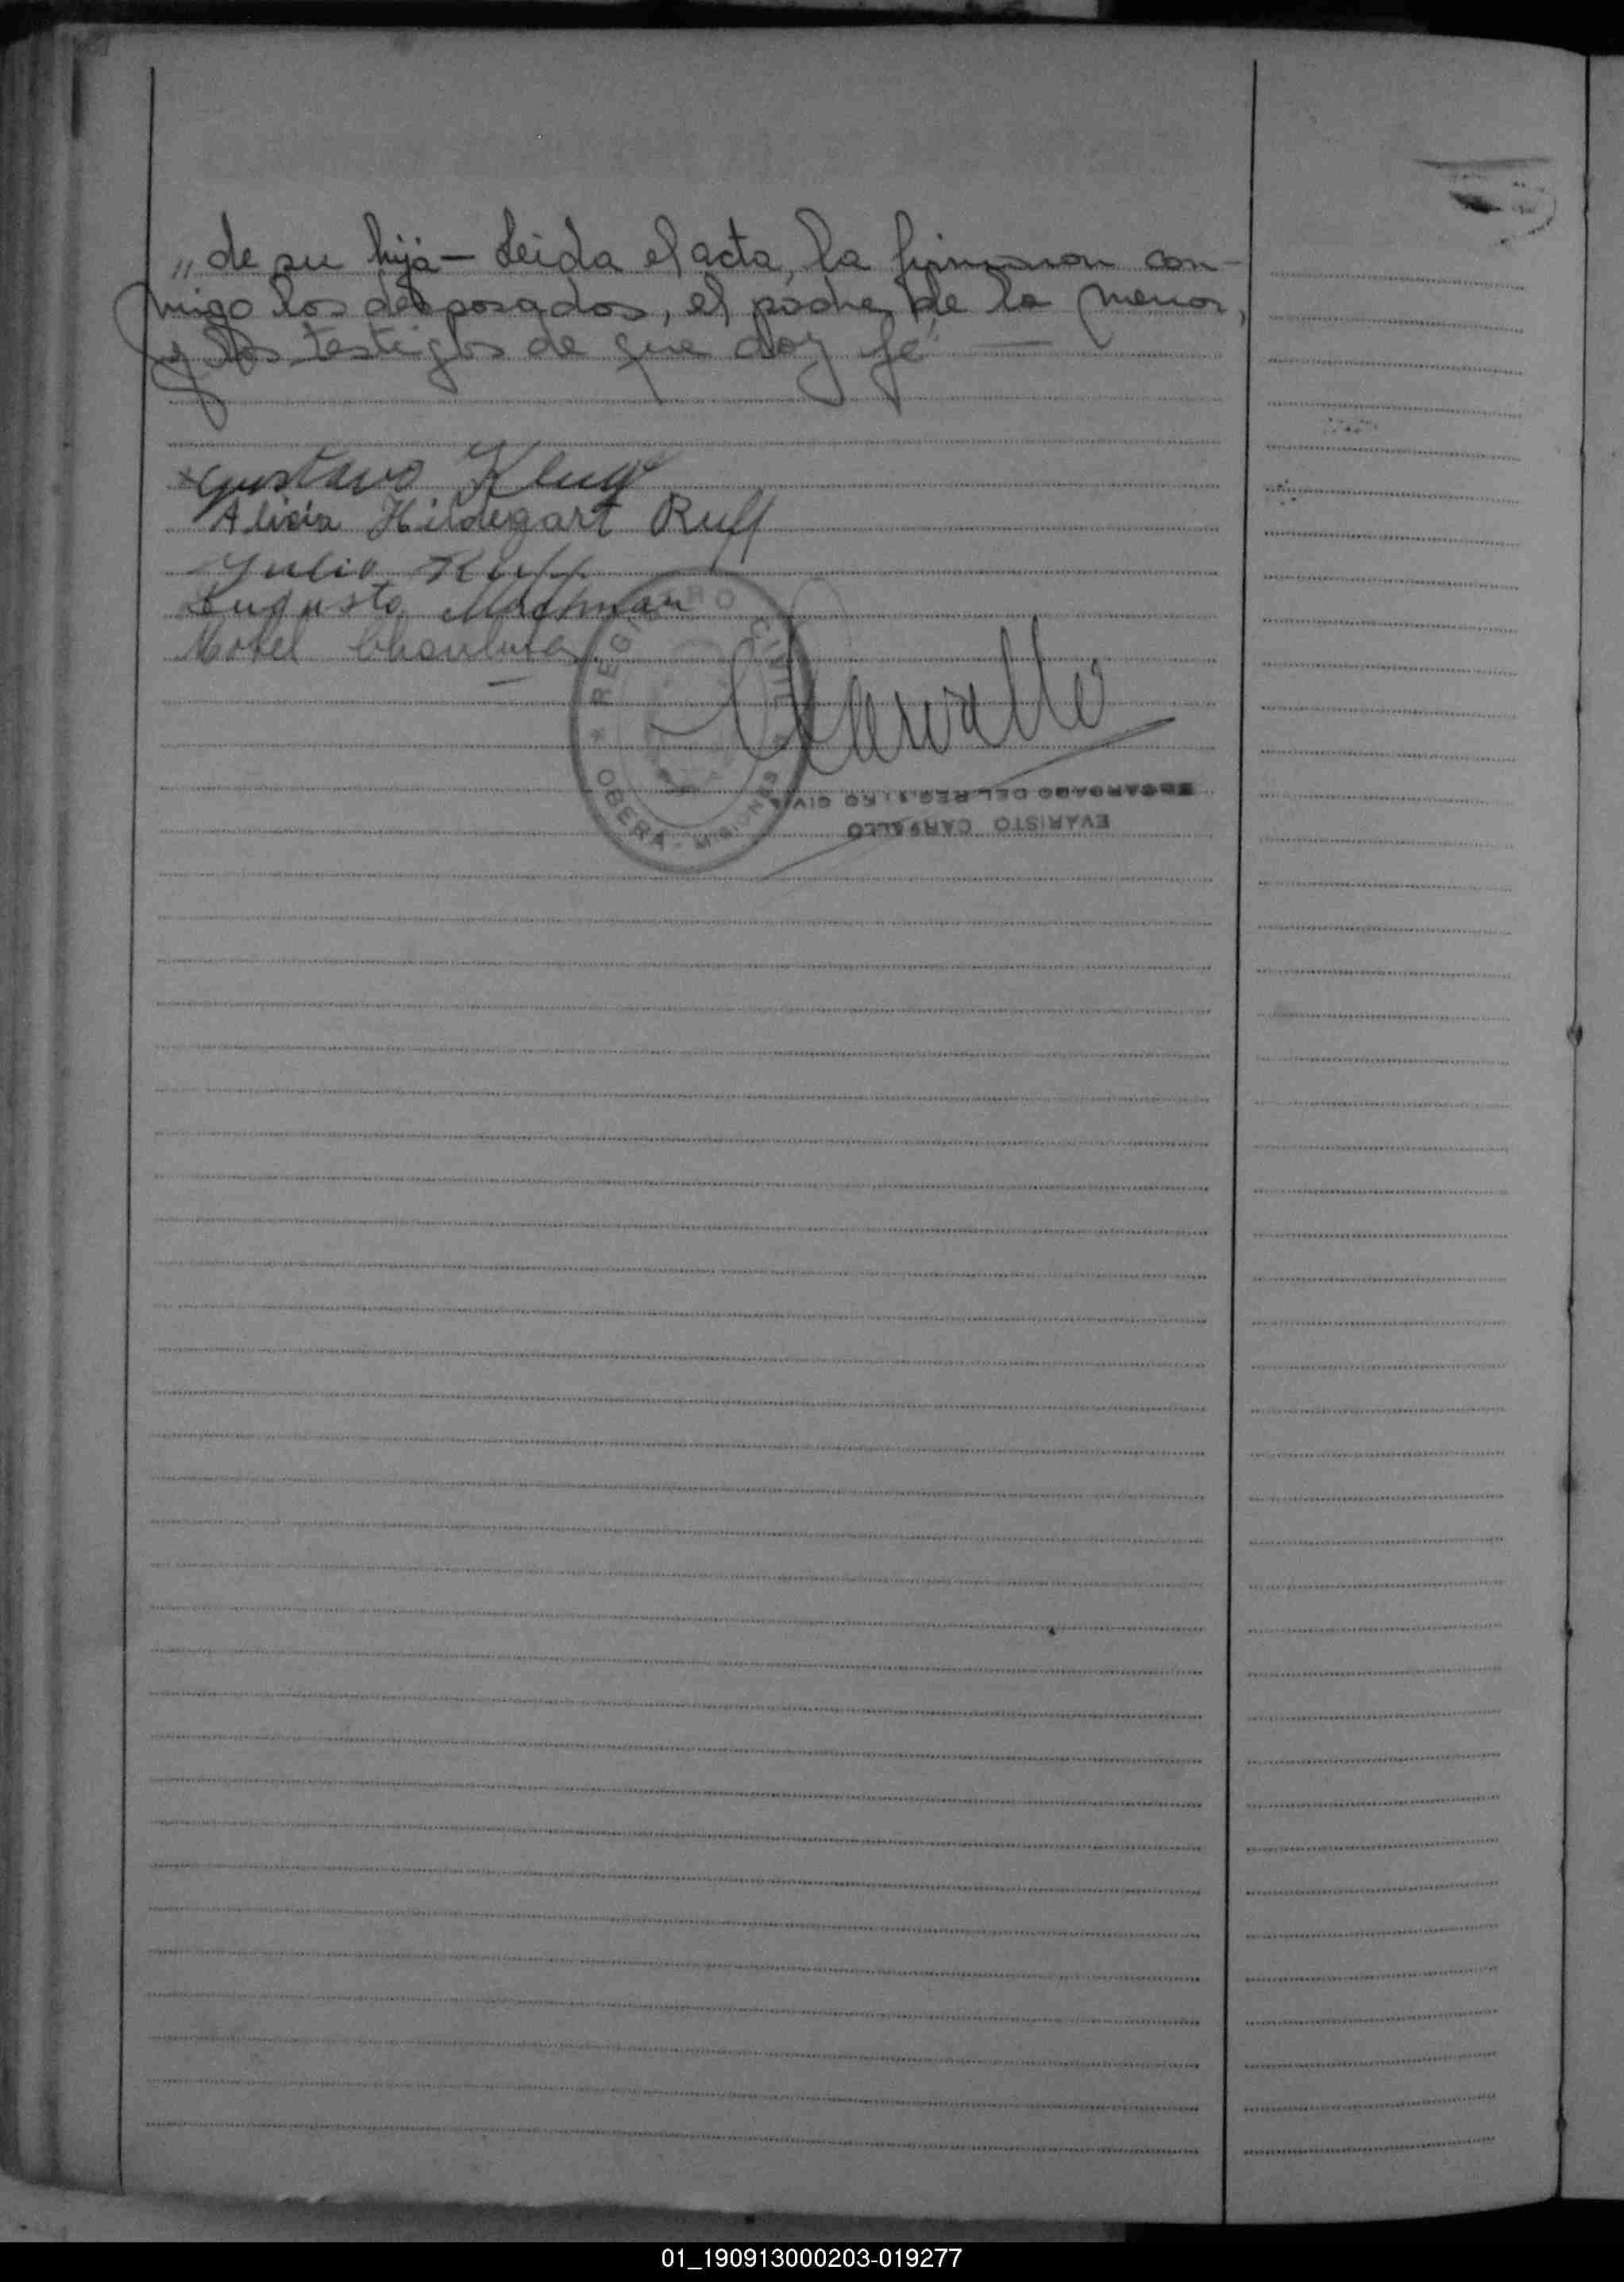 „ de su hija — Leida el acta, la firmaron con-
migo los desposados, el padre de la menor,
y los testigos de que doy fé —
Gustavo Klug
Alicia Hildegart Ruff
Julio Ruff
Augusto
Carvallo
REGISTRO CIVIL
* OBERA - MISIONES *
ENCARGADO DEL REGISTRO CIVIL
EVARISTO CARVALLO
01_190913000203-019277